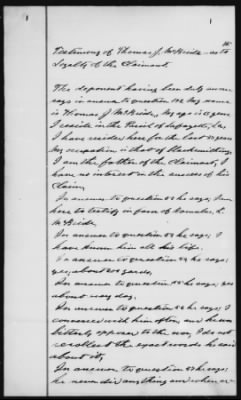 1
1
Testimony of Thomas J. McBride - as to
Loyalty of the Claimant.
The deponent having been duly sworn
says in answer to question 1st My name
is Thomas J. McBride, My age is years
I reside in the Parish of Lafayette, La.
I have resided here for the last years
My occupation is that of blacksmithing
I am the father of the Claimant, I
have no interest in the success of his
Claim.
In answer to question he says; I am
here to testify in favor of
McBride.
In answer to question he says; I
have known him all his life.
In answer to question he says;
yes, about yards.
In answer to question he says;
about every day.
In answer to question he says; I
conversed with him often, and he was
bitterly opposed to the war, I do not
recollect the exact words he said
about it,
In answer to question he says;
he never did anything and when